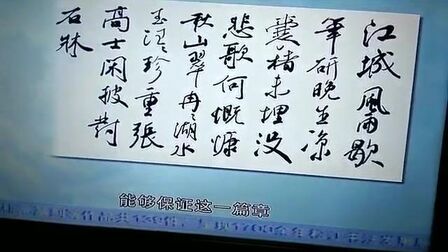 江城風雨歇
筆研晚生凉
囊楮未埋没
悲歌何慨慷
秋山翠冉〻湖水
玉汪〻珍重張
高士閑披對
石牀
能够保证这一篇章